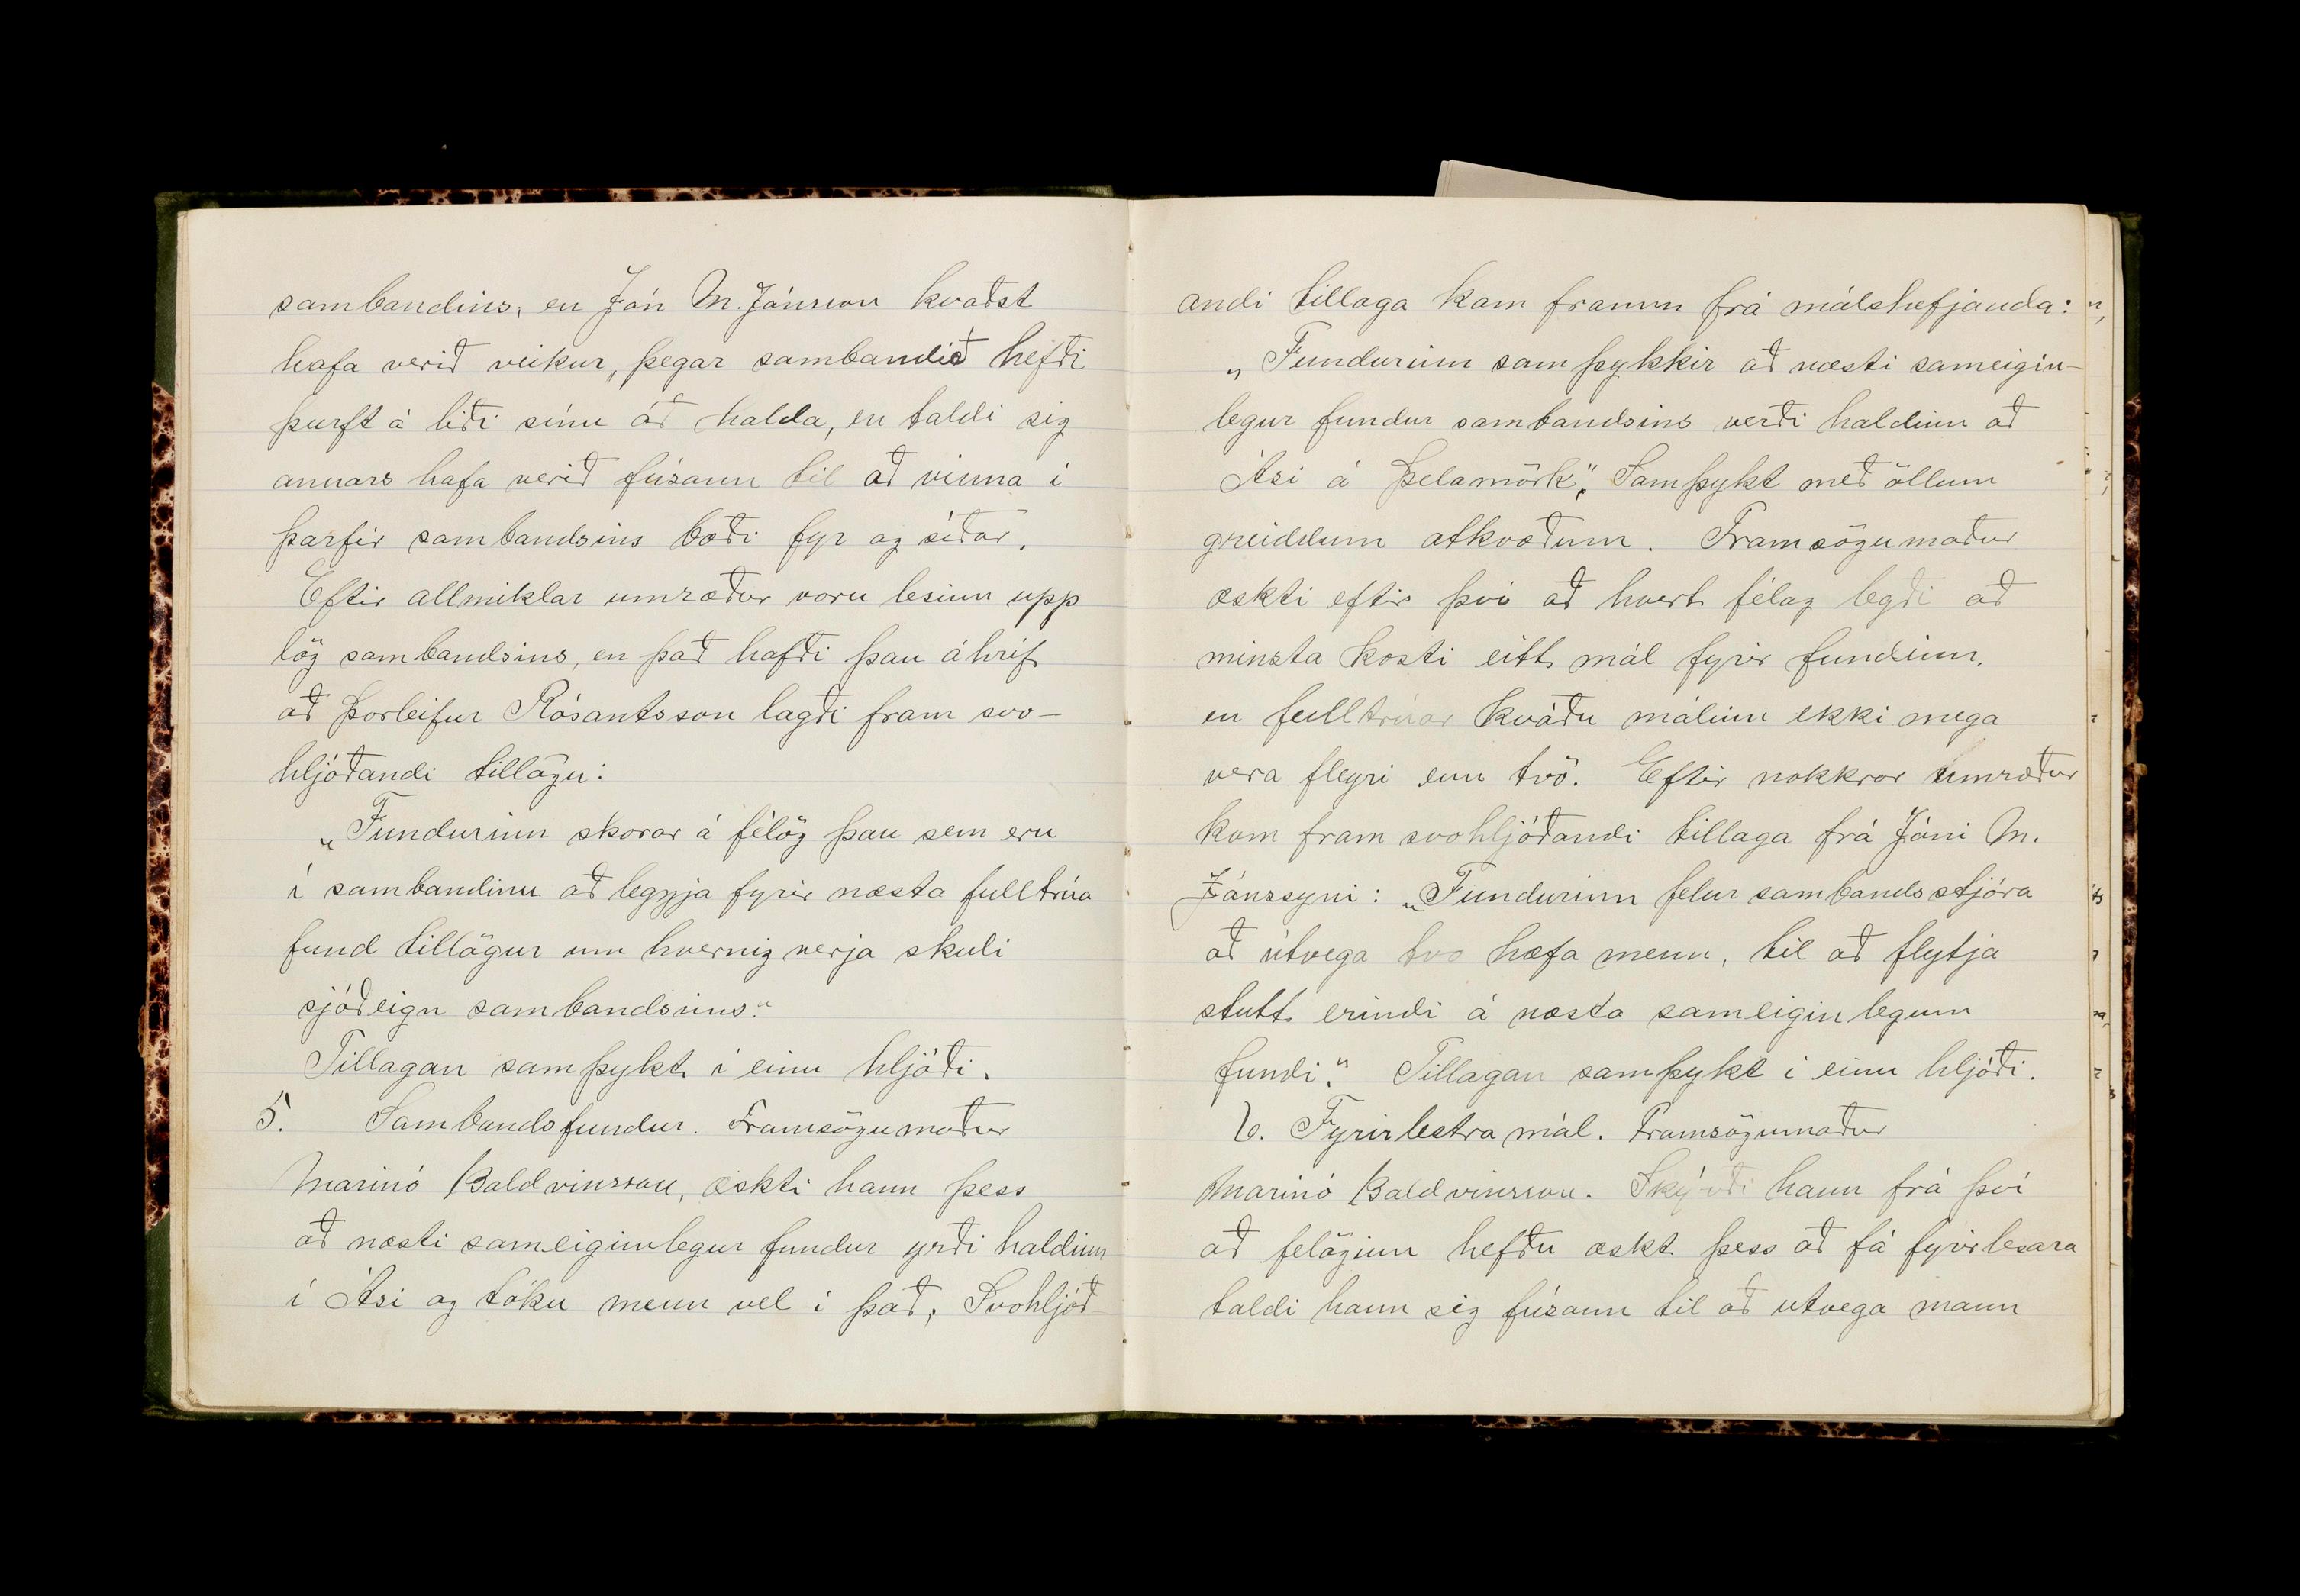 sambandins, en Jón M. Jónsson kvaðst
hafa verið veikur, þegar sambandið hefði
þurft á liði sínu að halda, en taldi sig
annars hafa verið fúsann til að vinna í
þarfir sambandsins bæði fyr og síðar.
Eftir allmiklar umræður voru lesinn upp
lög sambandsins, en það hafði þau áhrif
að Þorleifur Rósantsson lagði fram svo-
hljóðandi tillögu:
„Fundurinn skorar á félög þau sem eru
í sambandinu að leggja fyrir næsta fulltrúa
fund tillögur um hvernig verja skuli
sjóðeign sambandsins."
Tillagan samþykt í einu hljóði.
5. Sambandsfundur. Framsögumaður
Marinó Baldvinsson, æskti hann þess
að næsti sameiginlegur fundur yrði haldinn
í Ási og tóku menn vel í það, Svohljóð-
andi tillaga kom framm frá málshefjanda:
„Fundurinn samþykkir að næsti sameigin-
legur fundur sambandsins verði haldinn að
Ási á Þelamörk". Samþykt með öllum
greiddum atkvæðum. Framsögumaður
æskti eftir því að hvert félag legði að
minsta kosti eitt mál fyrir fundinn,
en fulltrúar kváðu málinn ekki mega
vera fleyri enn tvö. Eftir nokkrar umræður
kom fram svohljóðandi tillaga frá Jóni M.
Jónssyni: „Fundurinn felur sambandsstjóra
að útvega tvo hæfa menn, til að flytja
stutt erindi á næsta sameiginlegum
fundi." Tillagan samþykt í einu hljóði.
6. Fyrirlestramál. Framsögumaður
Marinó Baldvinsson. Skýrði hann frá því
að felöginn hefðu æskt þess að fá fyrirlesara
taldi hann sig fúsann til að utvega mann